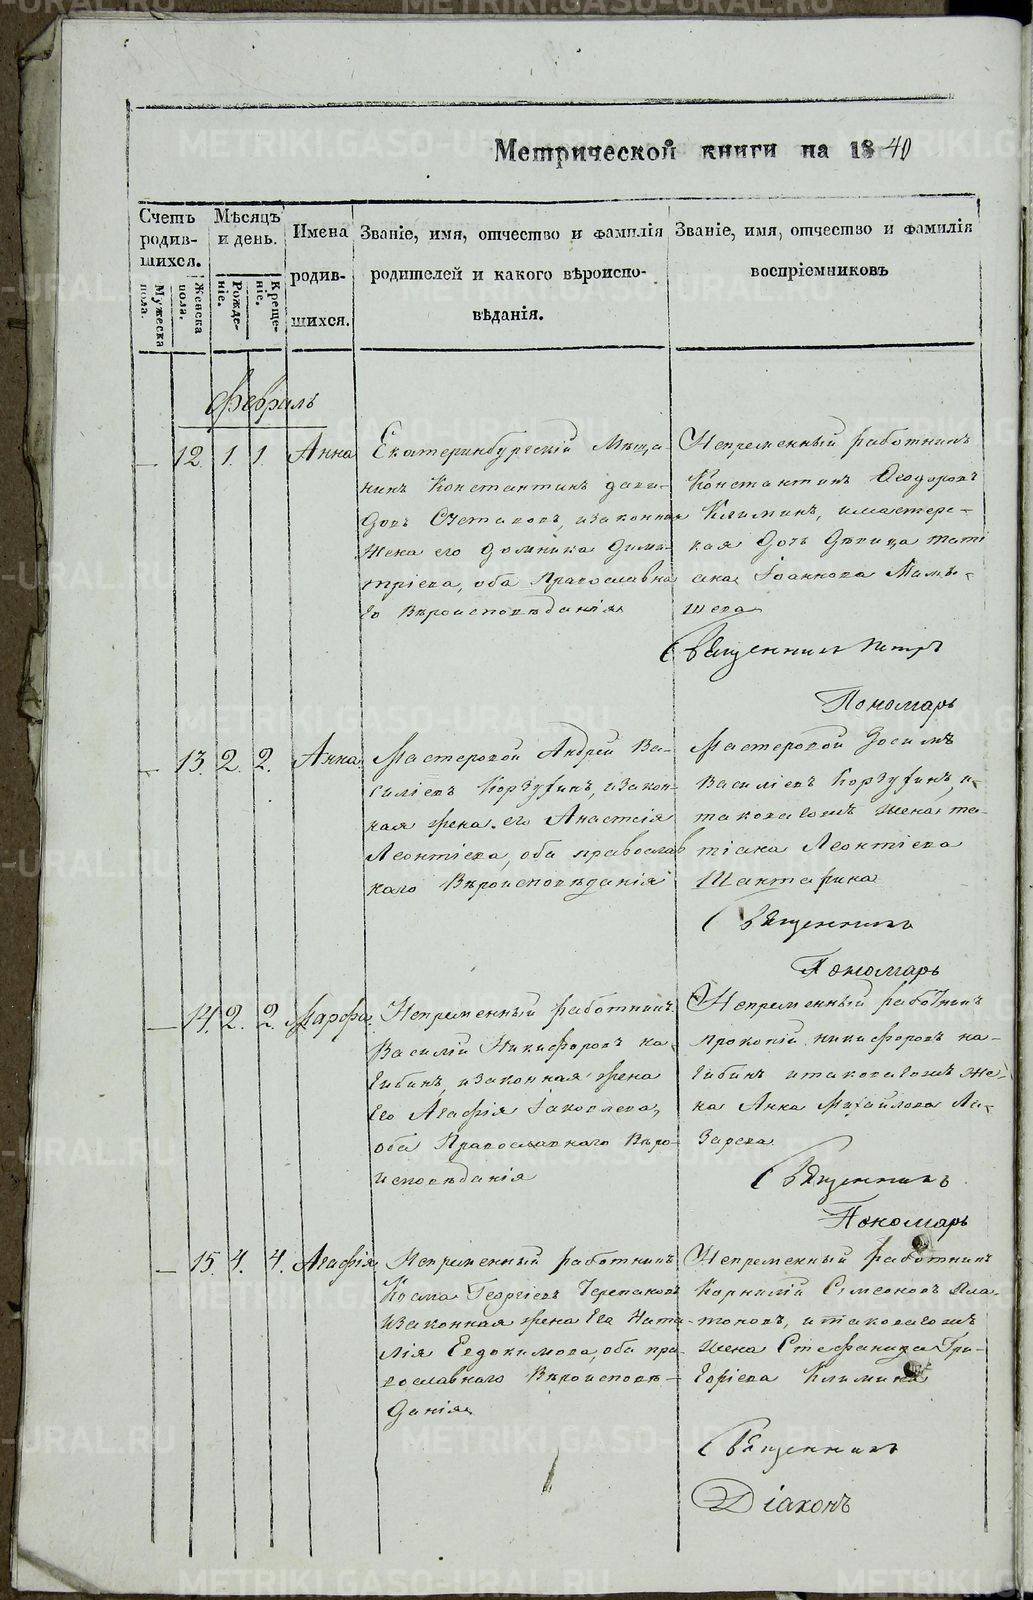 Метрической книги на 1840
Счетъ родив-шихся. Мѣсяцъ и день. Имена родив-шихся. Званіе, имя, отчество и фамилія родителей и какого вѣроиспо-вѣданія. Званіе, имя, отчество и фамилія воспріемниковъ
Мужеска пола. Женска пола. Рожде-ніе. Креще-ніе.
Февраль
12. 1. 1. Анна
Екатеринбургскій Мѣща-
нинъ Константинъ Дави-
довъ Счетаковъ, изаконная
жена его Домника Дими-
тріева, оба Православна
го Вѣроисповѣданія
Непременный работникъ
Константинъ Ѳеодоровъ
Климинъ, имастерс-
кая дочь Дѣвица Тати
ана Іоаннова Мамы-
шева
Священникъ Петръ
Пономарь
13. 2. 2. Анна
Мастеровой Андрей Ва-
силіевъ Корзухинъ, изакон-
ная жена его Анастасія
Леонтіева, оба православ
наго Вѣроисповѣданія
Мастеровой Зосимъ
Василіевъ Корзухинъ, и
таковагожъ жена та-
тіана Леонтіева
Шантарина
Священникъ
Пономарь
14. 2. 2. Марфа
Непременный работникъ
Василій Никифоровъ На-
гибинъ, изаконная жена
его Агафія Іаковлева,
оба Православнаго Вѣро-
исповѣданія
Непременный работникъ
Прокопій Никифоровъ На-
гибинъ итаковагожъ же-
на Анна Михайлова Ла-
зарева
Священникъ
Пономарь
15. 4. 4. Агафія
Непременный работникъ
Косма Георгіевъ Черепановъ
изаконная жена его Ната-
лія Евдокимова, оба пра-
вославнаго Вѣроисповѣ-
данія
Непременный работникъ
Корнилій Симеоновъ Пла-
тоновъ, итаковагожъ
жена Стефанида Гри-
горіева Климина
Священникъ
Діаконъ
METRIKI.GASO-URAL.RU